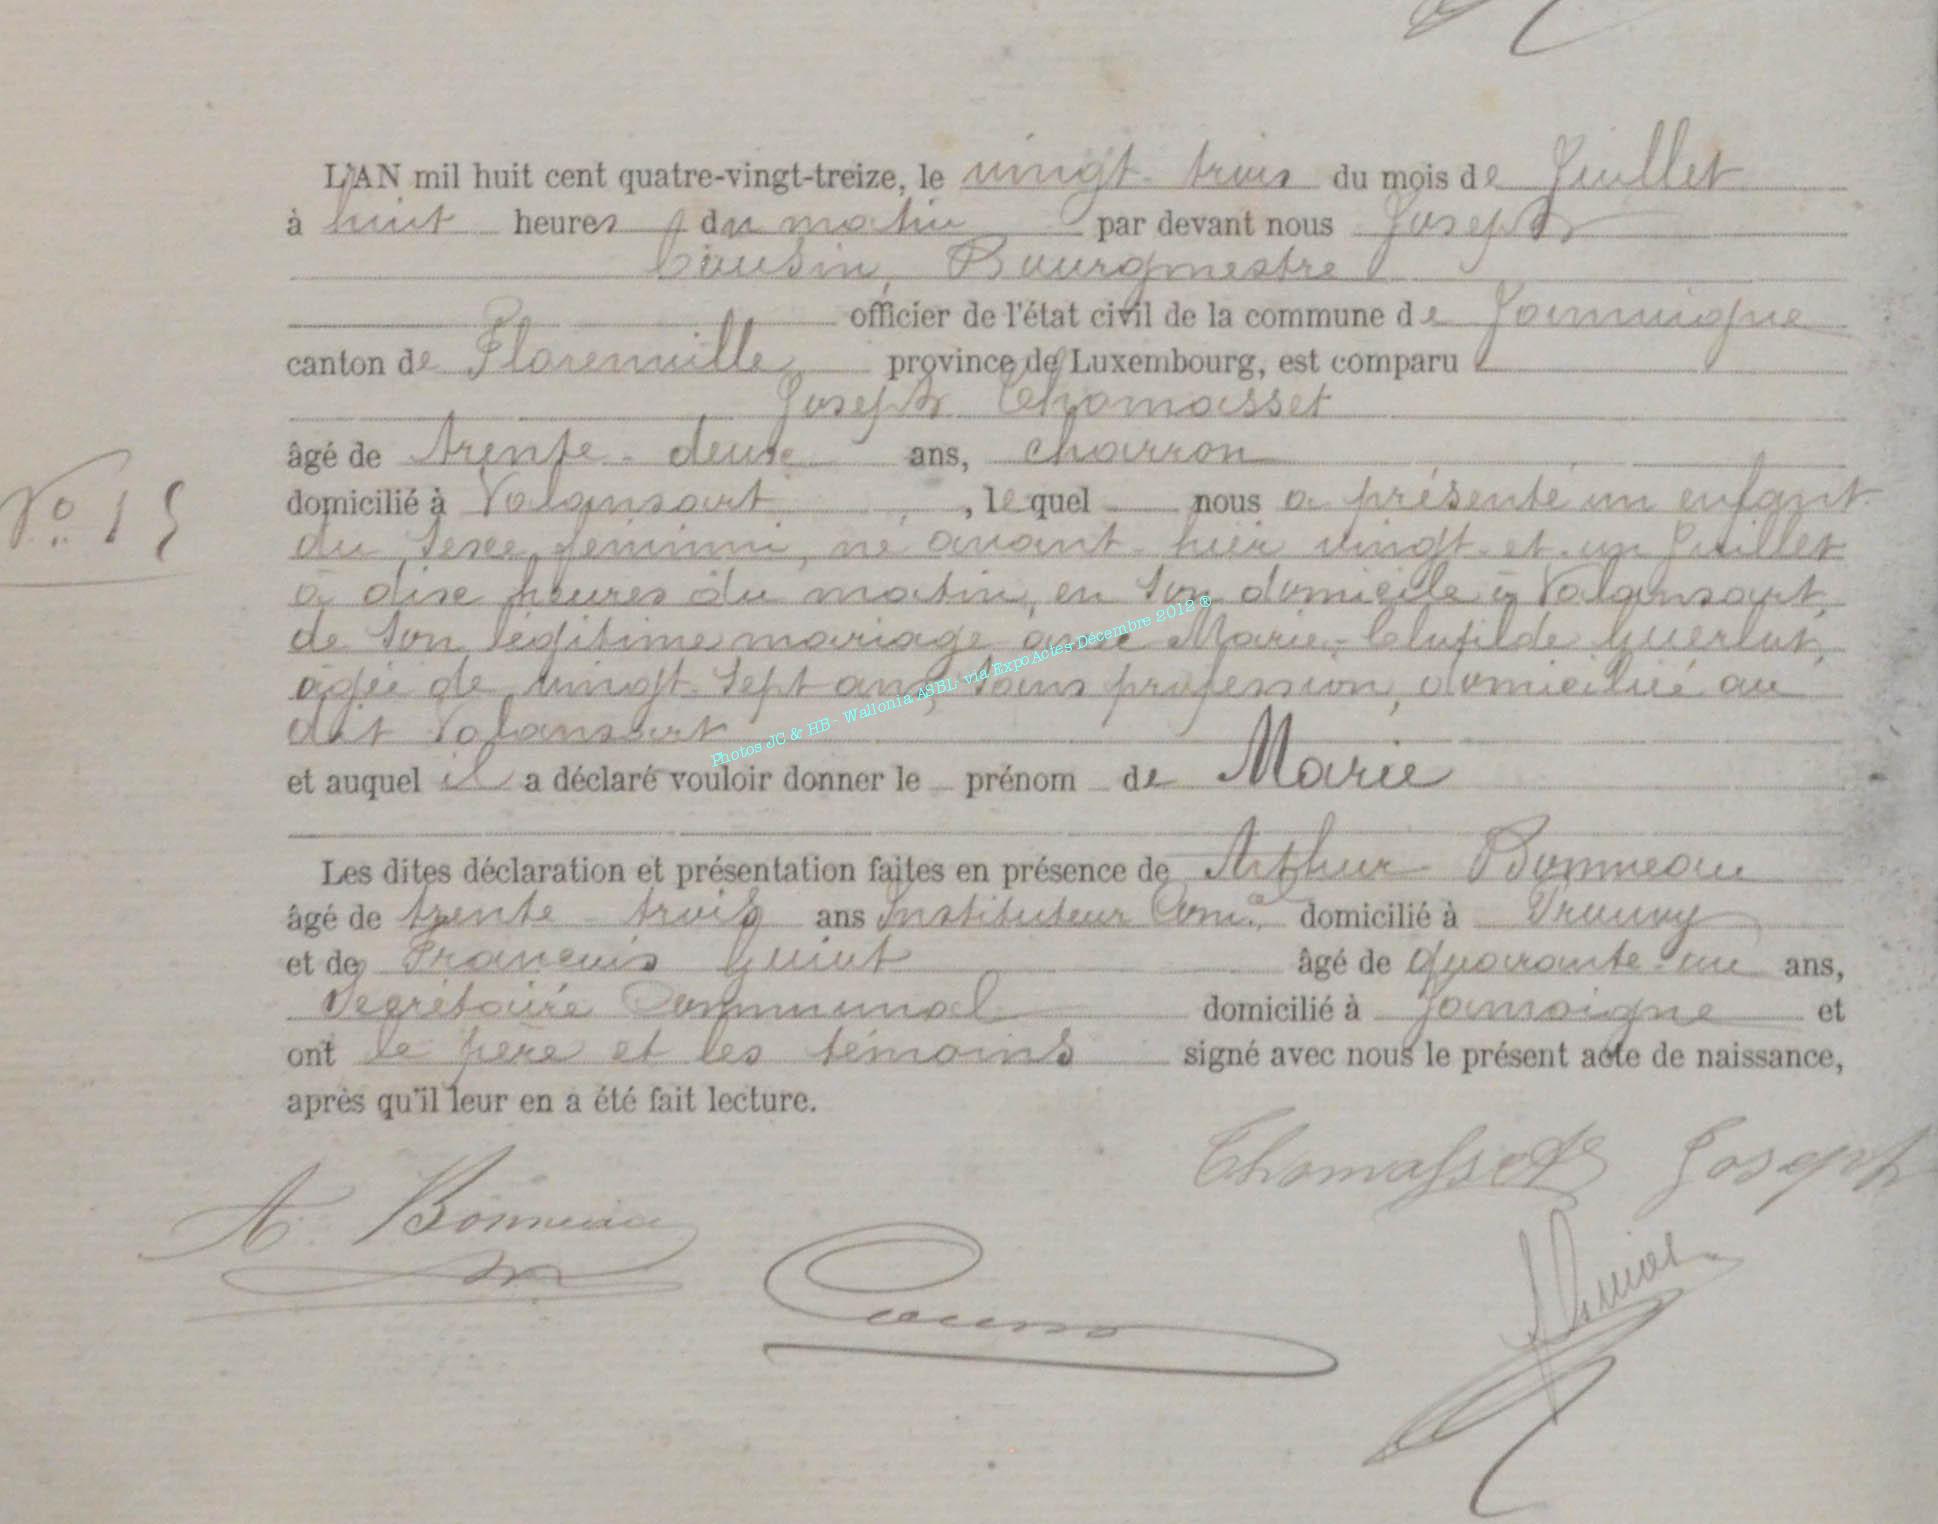 L'AN mil huit cent quatre-vingt-treize, le vingt-trois du mois de Juillet
à huit heures du matin par devant nous Joseph
Cousin, Bourgmestre
officier de l'état civil de la commune de Jamoigne
canton de Florenville province de Luxembourg, est comparu
Joseph Thomasset
âgé de trente-deux ans, charron
domicilié à Valansart, lequel nous a présenté un enfant
No 15
du sexe féminin, né avant-hier vingt-et-un Juillet
à dix heures du matin, en son domicile à Valansart,
de son légitime mariage avec Marie-Clotilde Guerlot,
âgée de vingt-sept ans, sans profession, domiciliée au
dit Valansart
Photos JC & HB - Wallonia ASBL via ExpoActes Décembre 2012 ®
et auquel il a déclaré vouloir donner le prénom de Marie
Les dites déclaration et présentation faites en présence de Arthur Bonneau
âgé de trente-trois ans Instituteur Com.al domicilié à Prouvy
et de François Guiot âgé de quarante-un ans,
Secrétaire Communal domicilié à Jamoigne et
ont le père et les témoins signé avec nous le présent acte de naissance,
après qu'il leur en a été fait lecture.
Thomasset Joseph
A. Bonneau
Guiot